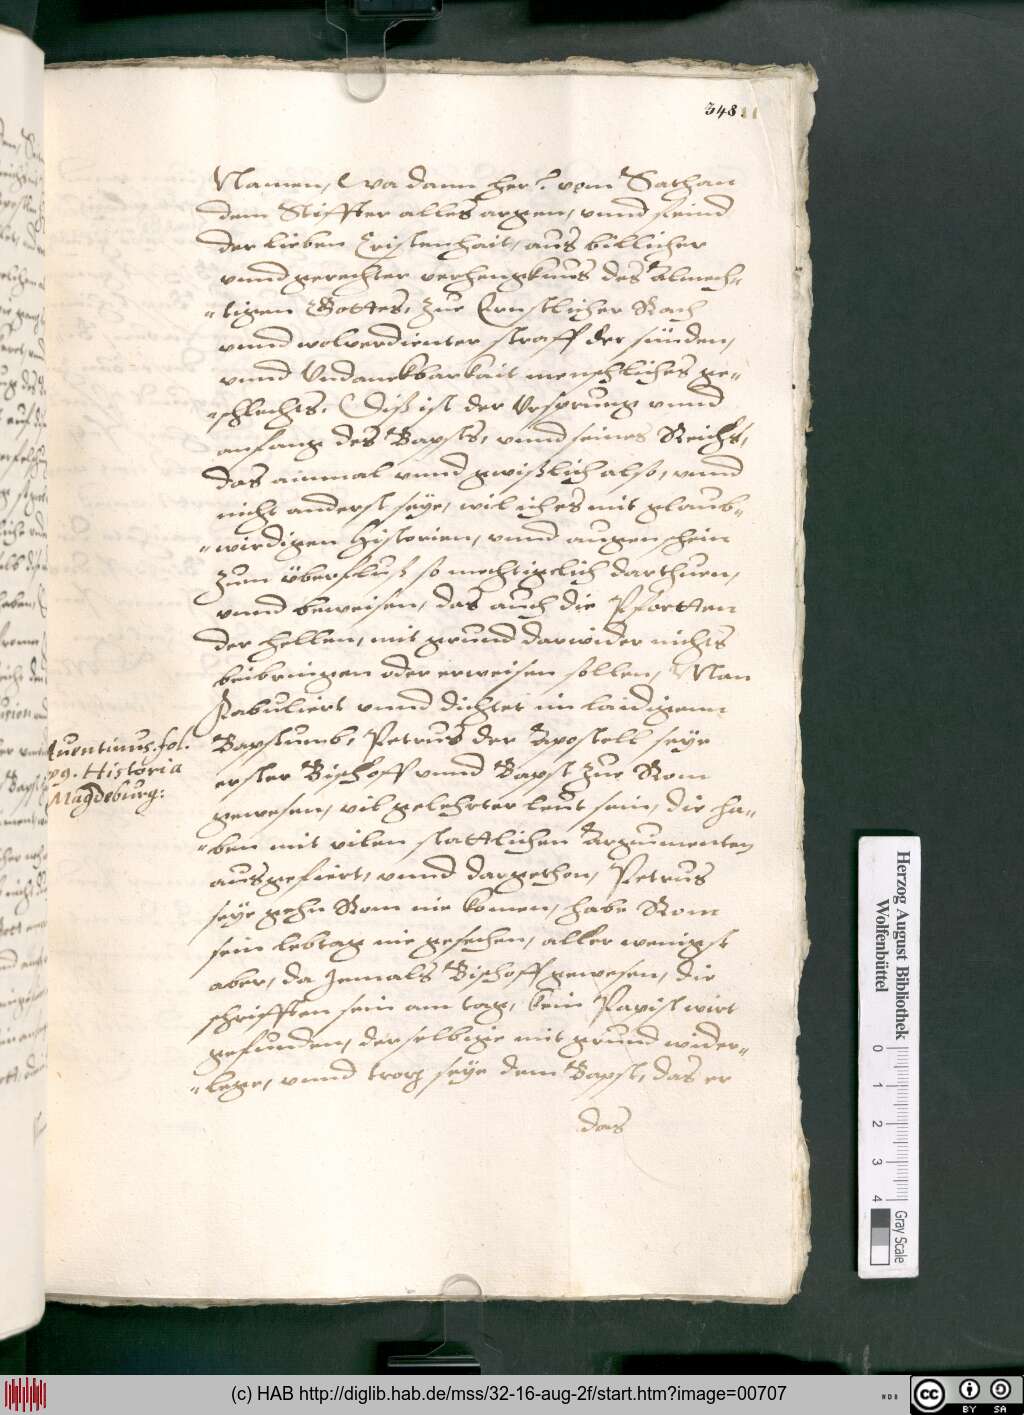 348
Namen, (Wa dann her? vom Sathan
dem Stiffter alles argen, vnnd feind
der lieben Cristenhait, aus billicher
vnnd gerechter verhengknus des Almech-
-tigen Gottes, zue Ernstlicher Rach
vnnd wolverdienter straff der sünden,
vnnd Vndanckbarkait menschliches ge-
-schlechts. (Diß ist der Vrsprung vnnd
anfang des Bapsts, vnnd seines Reichs,
das ainmal vnnd gwißlich also, vnnd
nicht anderst seye, wil ich es mit glaub-
-wirdigen Historien, vnnd augenschein
zum überfluß so mechtigelich darthuen,
vnnd beweisen, das auch die Pfortten
der hellen, mit grund darwider nichts
beibringen oder erweisen sollen, Man
Fabuliert vnnd dichtet im laidigenn
Bapstumb, Petrus der Apostell seye
erster Bischoff vnnd Bapst zue Rom
gewesen, vil gelehrter leut sein, die ha-
-ben mit vilen stattlichen Argumenten
ausgefiert, vnnd dargethon, Petrus
seye gehn Rom nie komen, habe Rom
sein lebtag nie gesechen, aller wenigst
aber, da Jemals Bischoff gewesen, die
schrifften sein am tag, kein Papist wirt
gefunden, der selbige mit grund wider-
-lege, vnnd trotz seye dem Bapst, das er
das
Auentinus. fol.
99. Historia
Magdeburg:
Herzog August Bibliothek
Wolfenbüttel
0 1 2 3 4
Gray Scale
(c) HAB http://diglib.hab.de/mss/32-16-aug-2f/start.htm?image=00707
WDB
cc BY SA